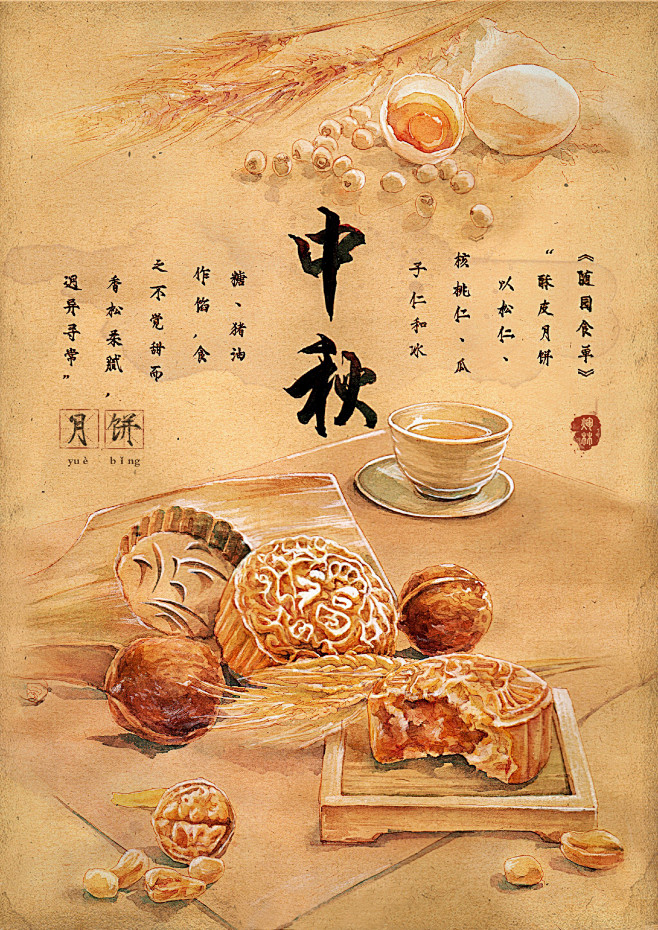 中秋
《随园食单》
“酥皮月饼
以松仁、
核桃仁、瓜
子仁和冰
糖、猪油
作馅，食
之不觉甜而
香松柔腻，
迥异寻常”
月饼
yuè bǐng